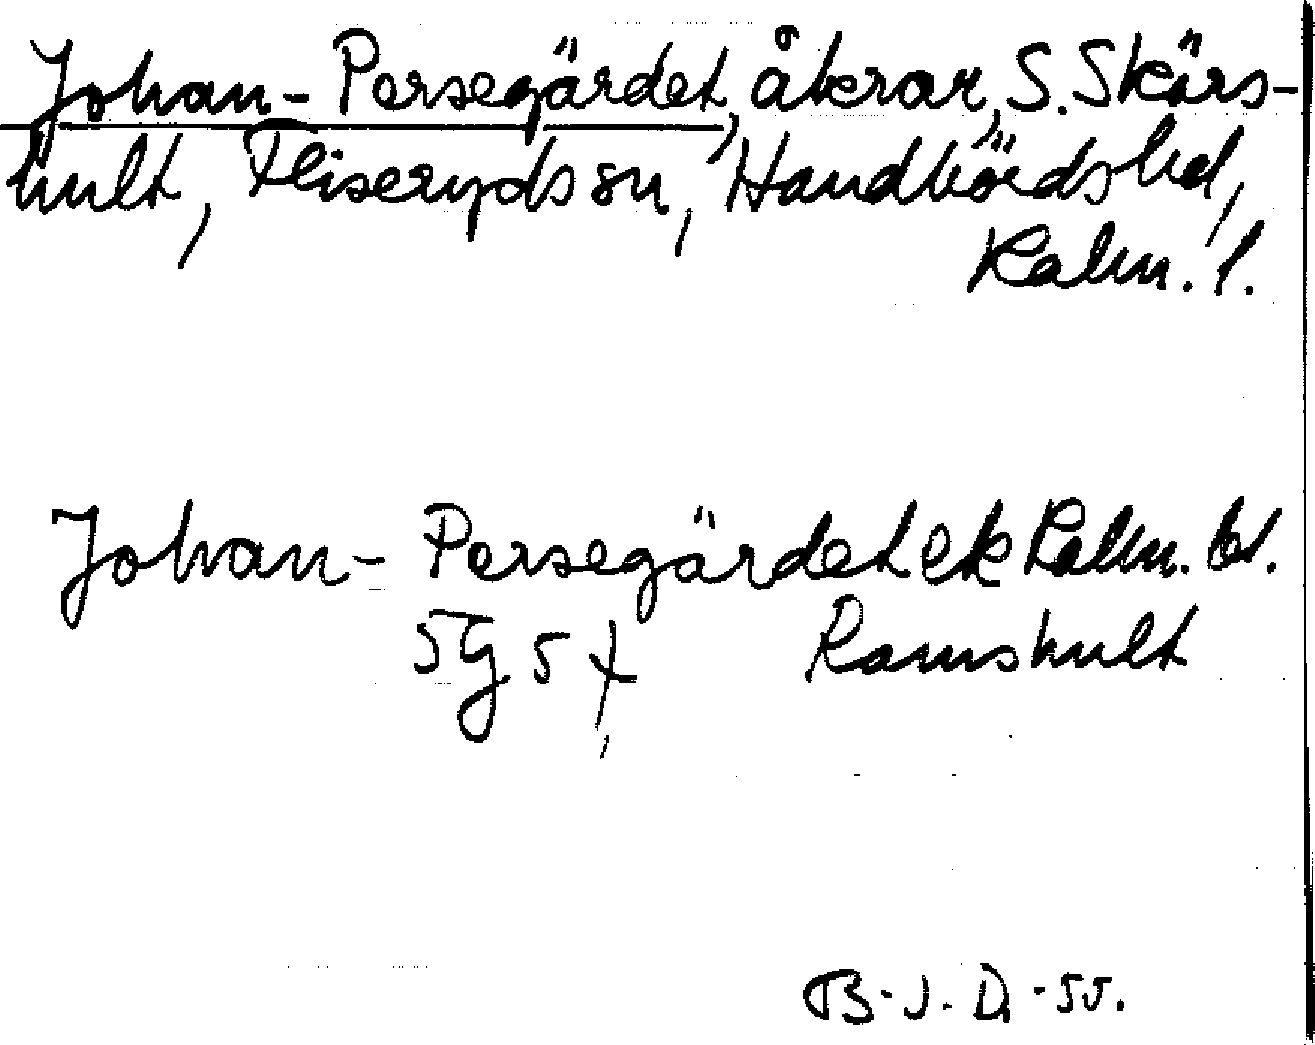 Johan-Persegärdet, åkrar, S. Skärs-
hult, Fliseryds sn, Handbörds hd,
Kalm. l.
Johan-Persegärdet ek Kalm. bl.
5G 5f, Ramshult
B.J.D.-55.